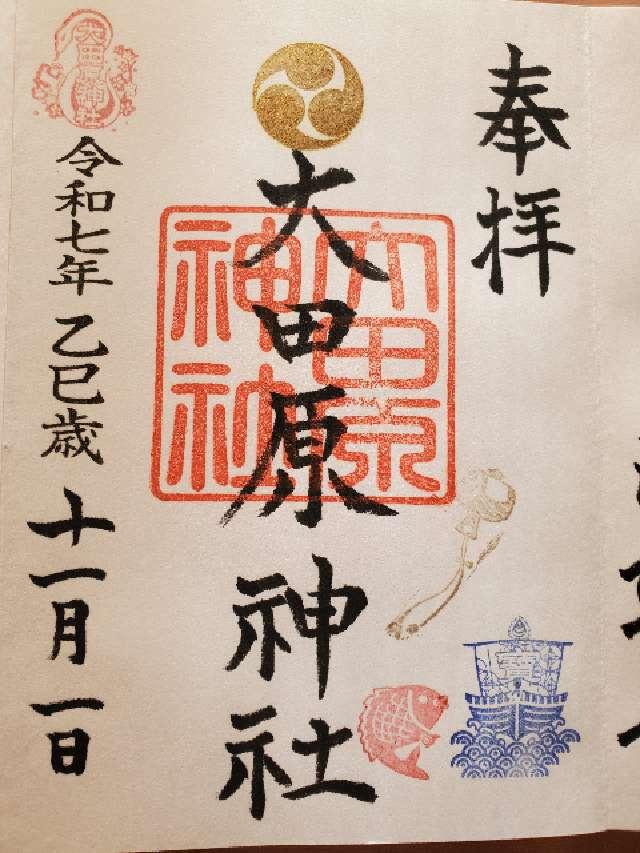 奉拝
大田原神社
大田原
神社
令和七年乙巳歳十一月一日
大田原神社